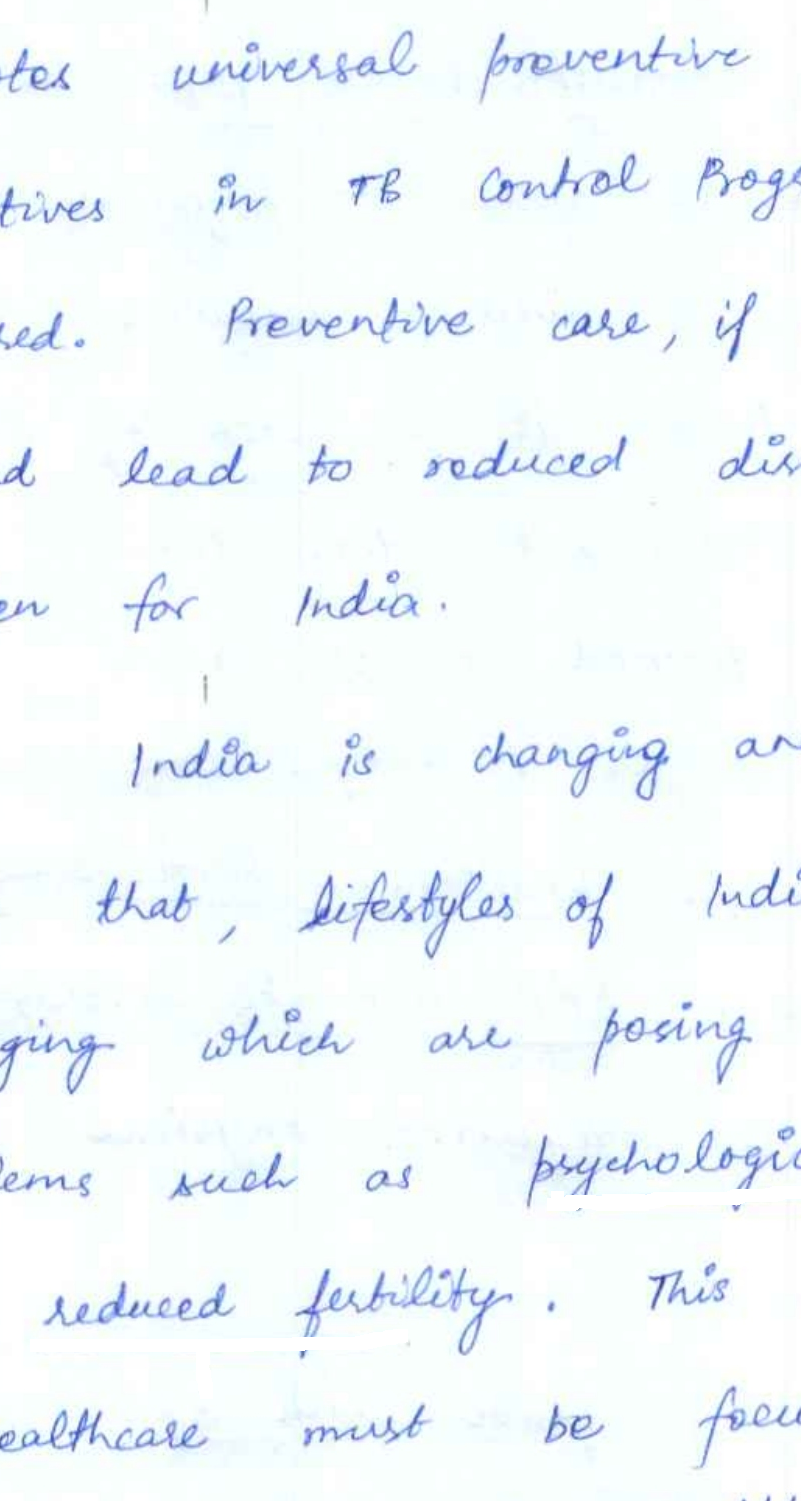 otes universal preventive
tives in TB Control Progr
sed. Preventive care, if
d lead to reduced dis
en for India.
India is changing an
that, lifestyles of Indi
ging which are posing
lems such as psychologic
reduced fertility. This
ealthcare must be focu